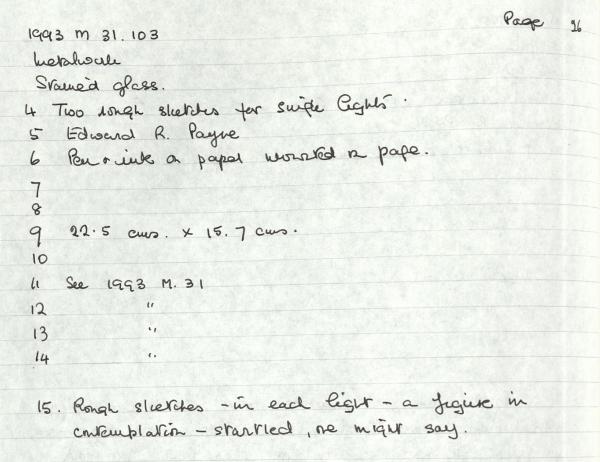 Page 26
1993 M 31.103
Metalwork
Stained glass.
4 Two rough sketches for single lights.
5 Edward R. Payne
6 Pen & ink on paper mounted on page.
7
8
9 22.5 cms. x 15.7 cms.
10
11 See 1993 M. 31
12 "
13 "
14 "
15. Rough sketches - in each light - a figure in
contemplation - startled, one might say.